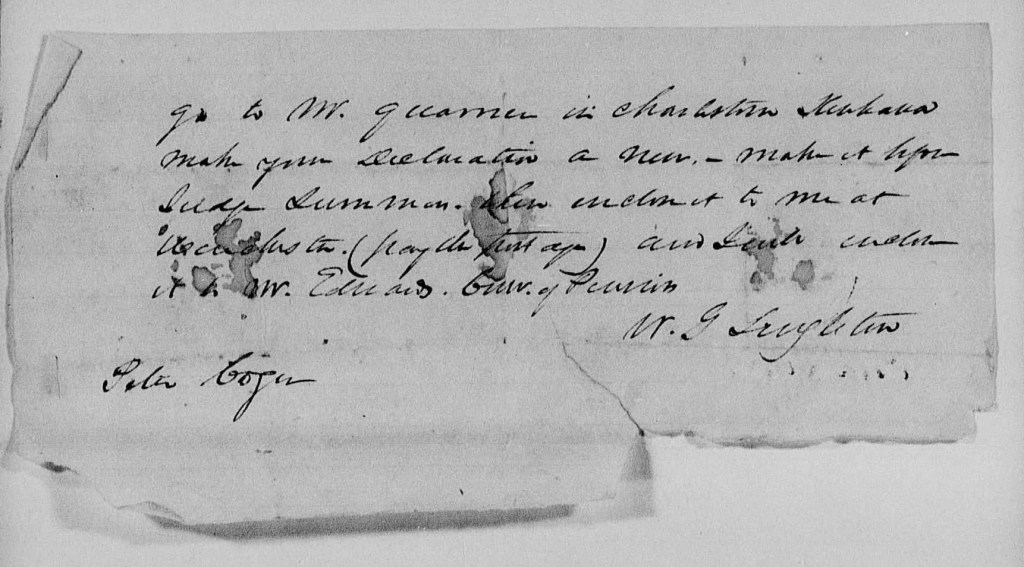 go to Mr. Quarrier in Charlston Kenhawa
make your Declaration a new. – make it before
Judge Summers. then enclose it to me at
Winchester. (pay the postage) and I will enclose
it to Mr. Edwards. Com. of Pensions
W. G Singleton
Peter Coger